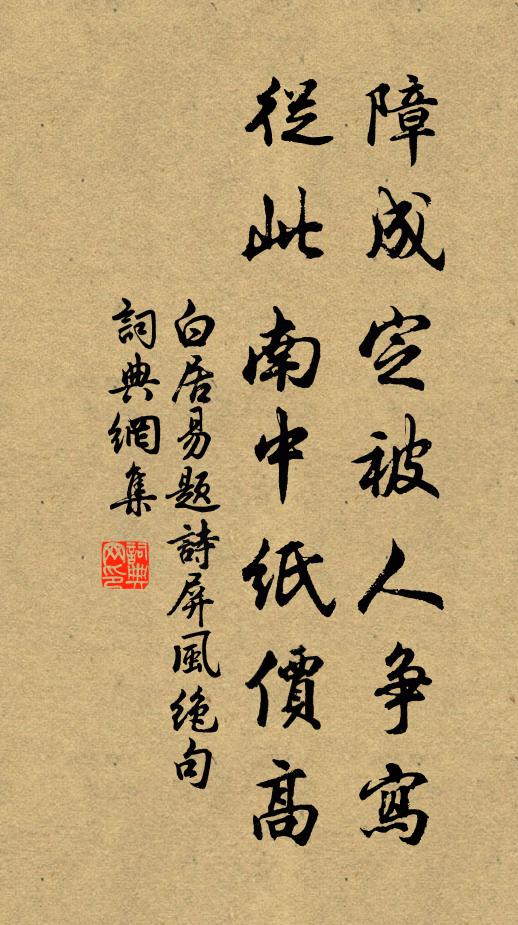 障成定被人争寫
從此南中紙價高
白居易題詩屏風絶句
詞典網集
詞典网印